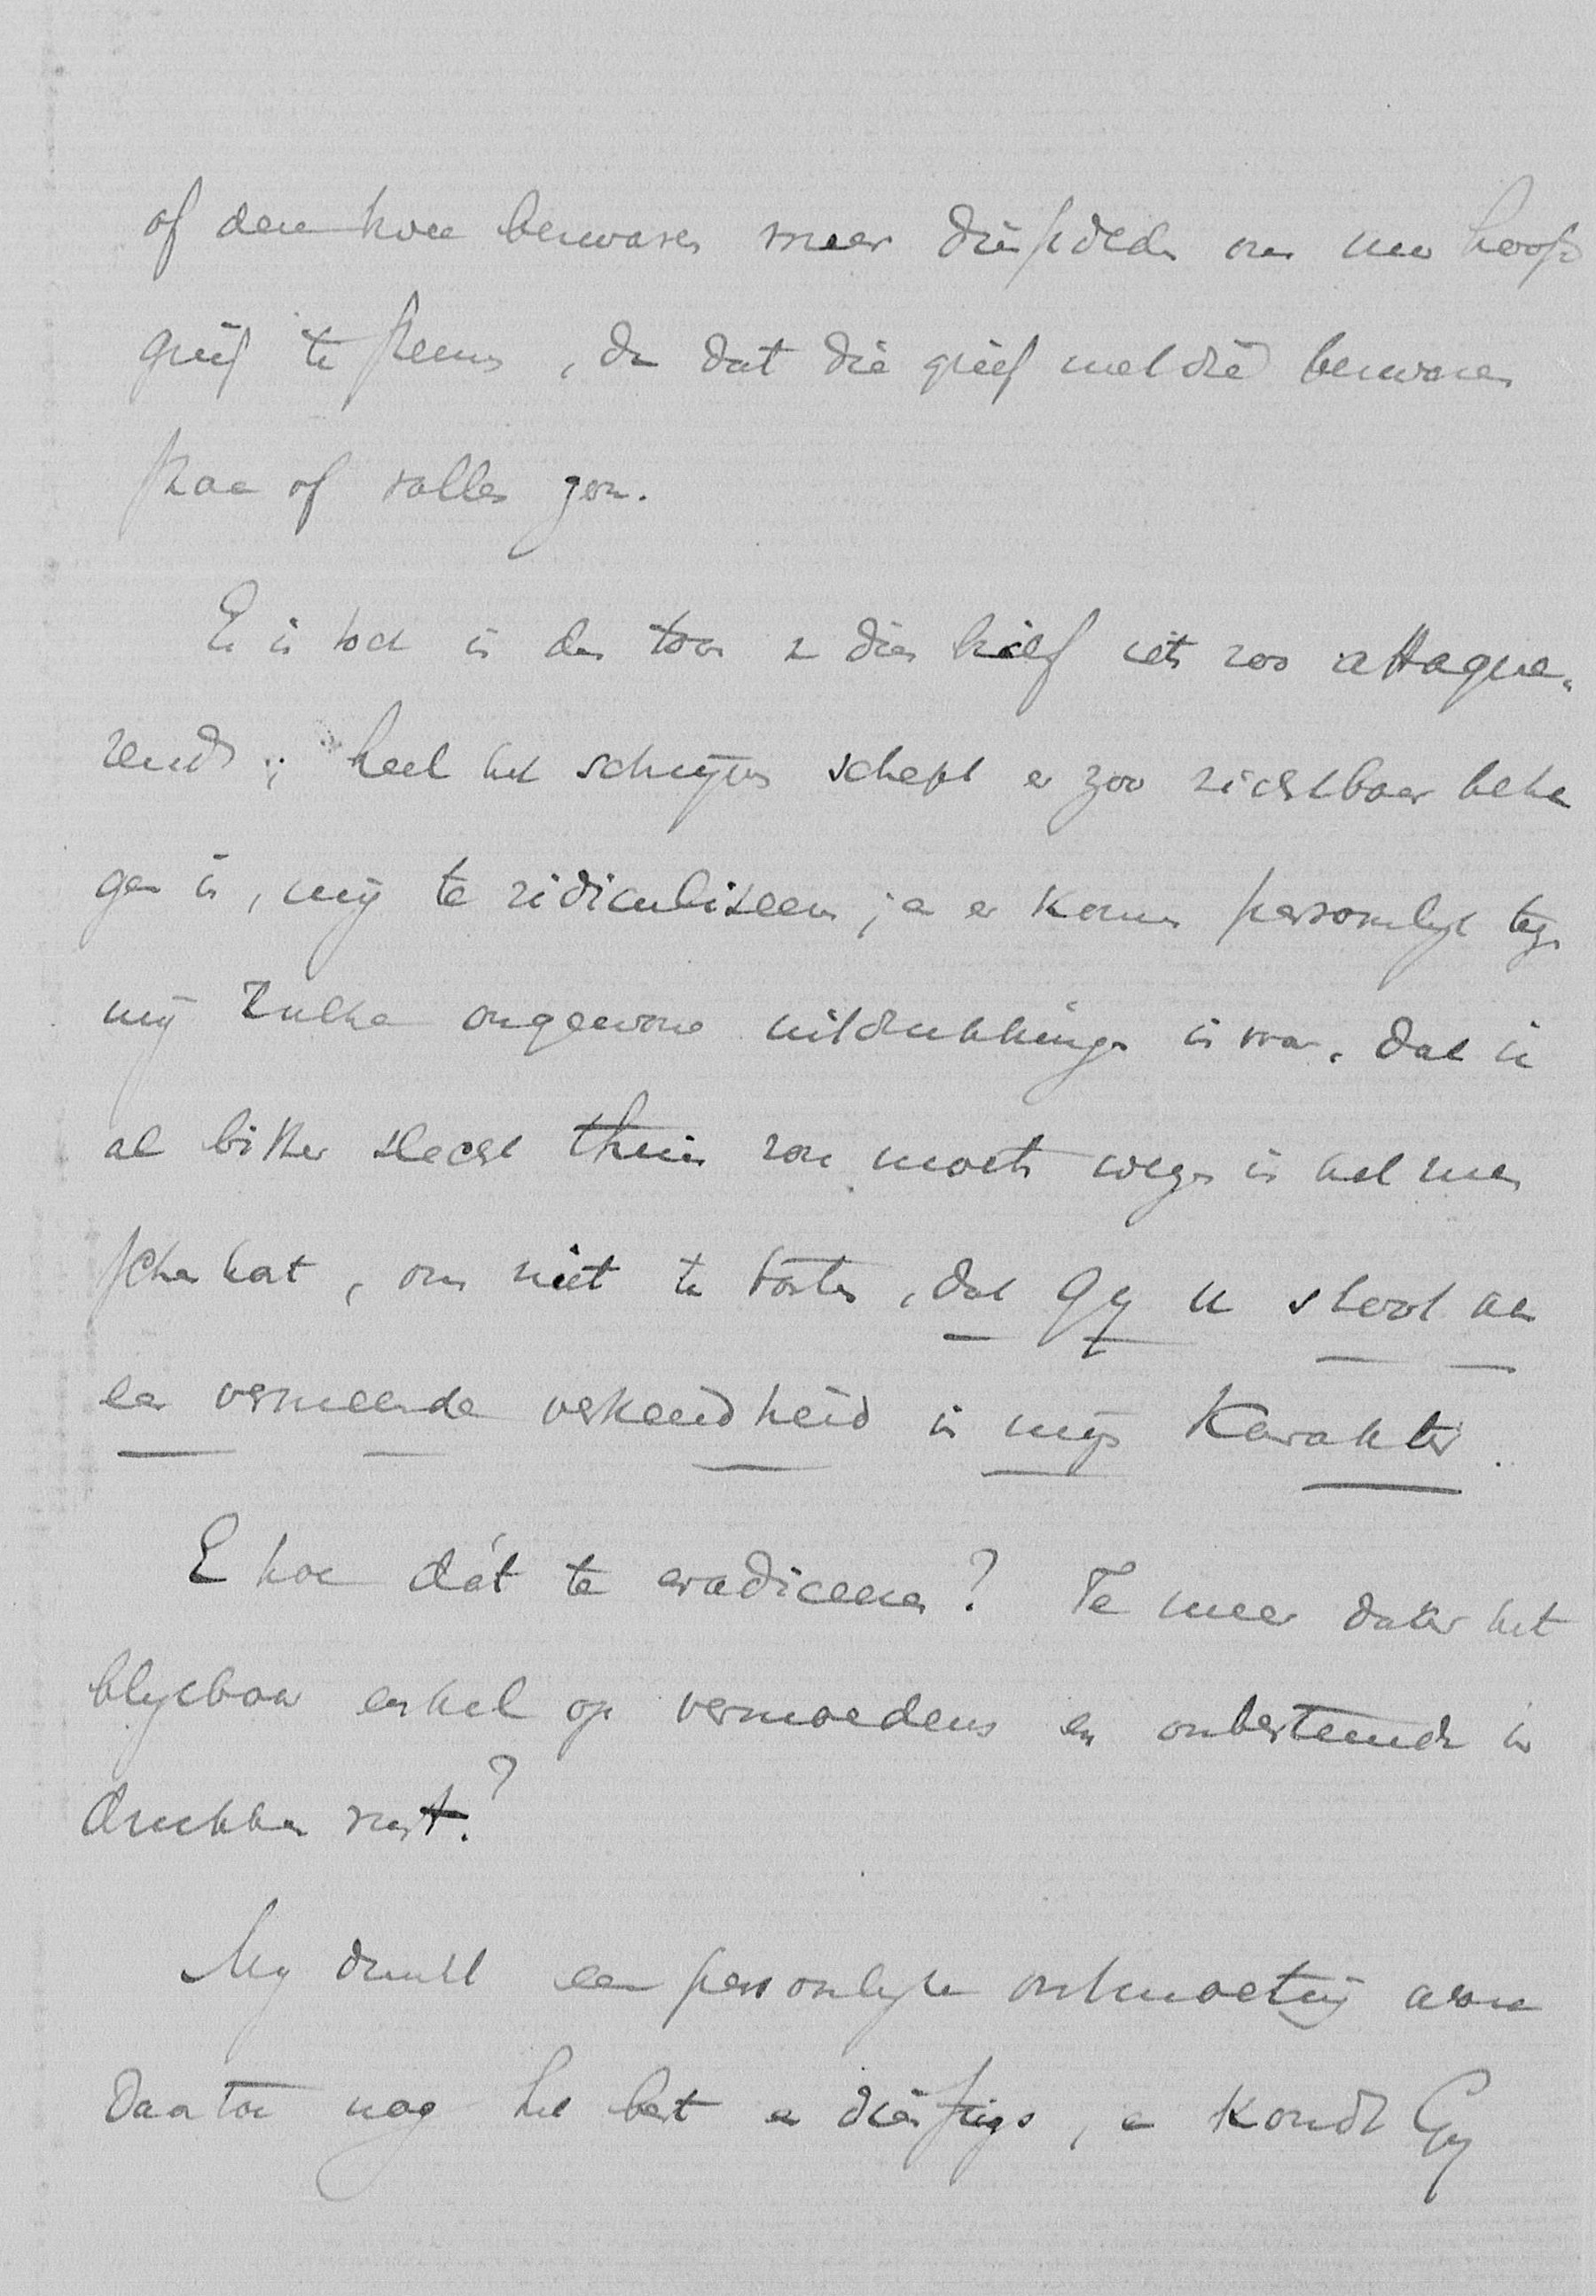 of den hoee bezwaren meer dienden om uw hoofd
grief te steunen, dan dat die grief met die bezwaren
staan of vallen zou.
Er is toch in den toon van dien brief iets zoo attaquee-
rends; heel het schrijven schept er zoo zichtbaar beha
gen in, mij te ridiculiseeren; en er komen persoonlijk tegen
mij zulke ongewone uitdrukkingen in voor, dat ik
al bitter slecht thuis zou moeten wezen in het men
schenhart, om niet te tasten, dat Gy u stoot aan
een vermeende verkeerdheid in mijn karakter.
En hoe dát te eradiceeren? Te meer daar het
blykbaar enkel op vermoedens en onbestemde in
drukken rust?
My dunkt een persoonlyke ontmoeting ware
daartoe nog het best en dienstigst, en kondt Gy